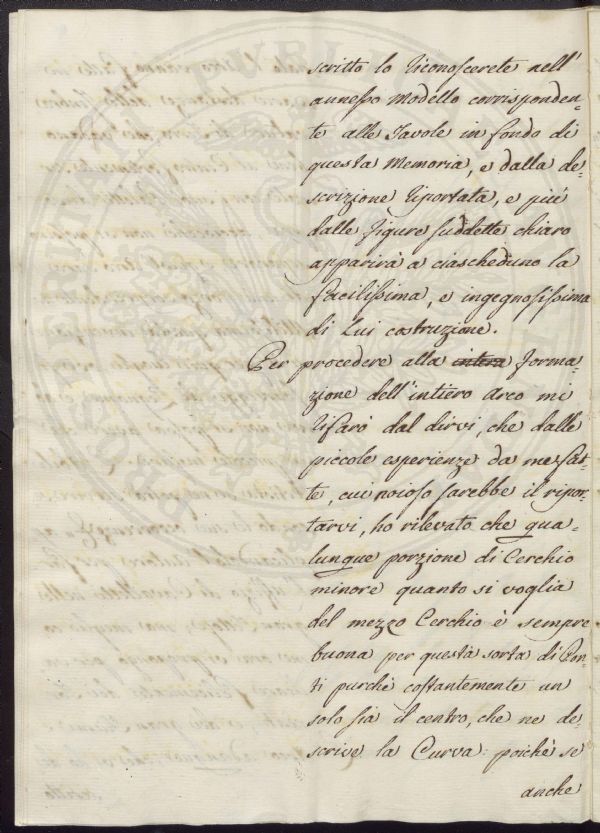 scritto lo riconoscerete nell'
annesso Modello corrisponden-
te alle Tavole in fondo di
questa Memoria, e dalla de-
scrizione riportata, e più
dalle figure suddette chiaro
apparirà a ciascheduno la
facilissima, e ingegnosissima
di Lui costruzione.
Per procedere alla intera forma-
zione dell'intiero Arco mi
rifarò dal dirvi, che dalle
piccole esperienze da me fat-
te, cui noioso sarebbe il ripor-
tarvi, ho rilevato che qua-
lunque porzione di Cerchio
minore quanto si voglia
del mezzo Cerchio è sempre
buona per questa sorta di Pon-
ti purchè costantemente un
solo sia il centro, che ne de-
scrive la Curva: poichè se
anche